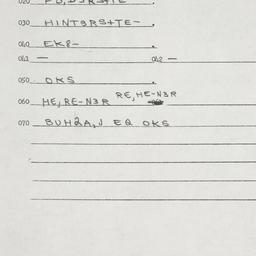 030 HINTGRS+TE- .
040 EK8- .
041 — 042 —
050 OKS
RE, HE-N3R
060 HE, RE-N3R
070 BUH2A, J EQ OKS